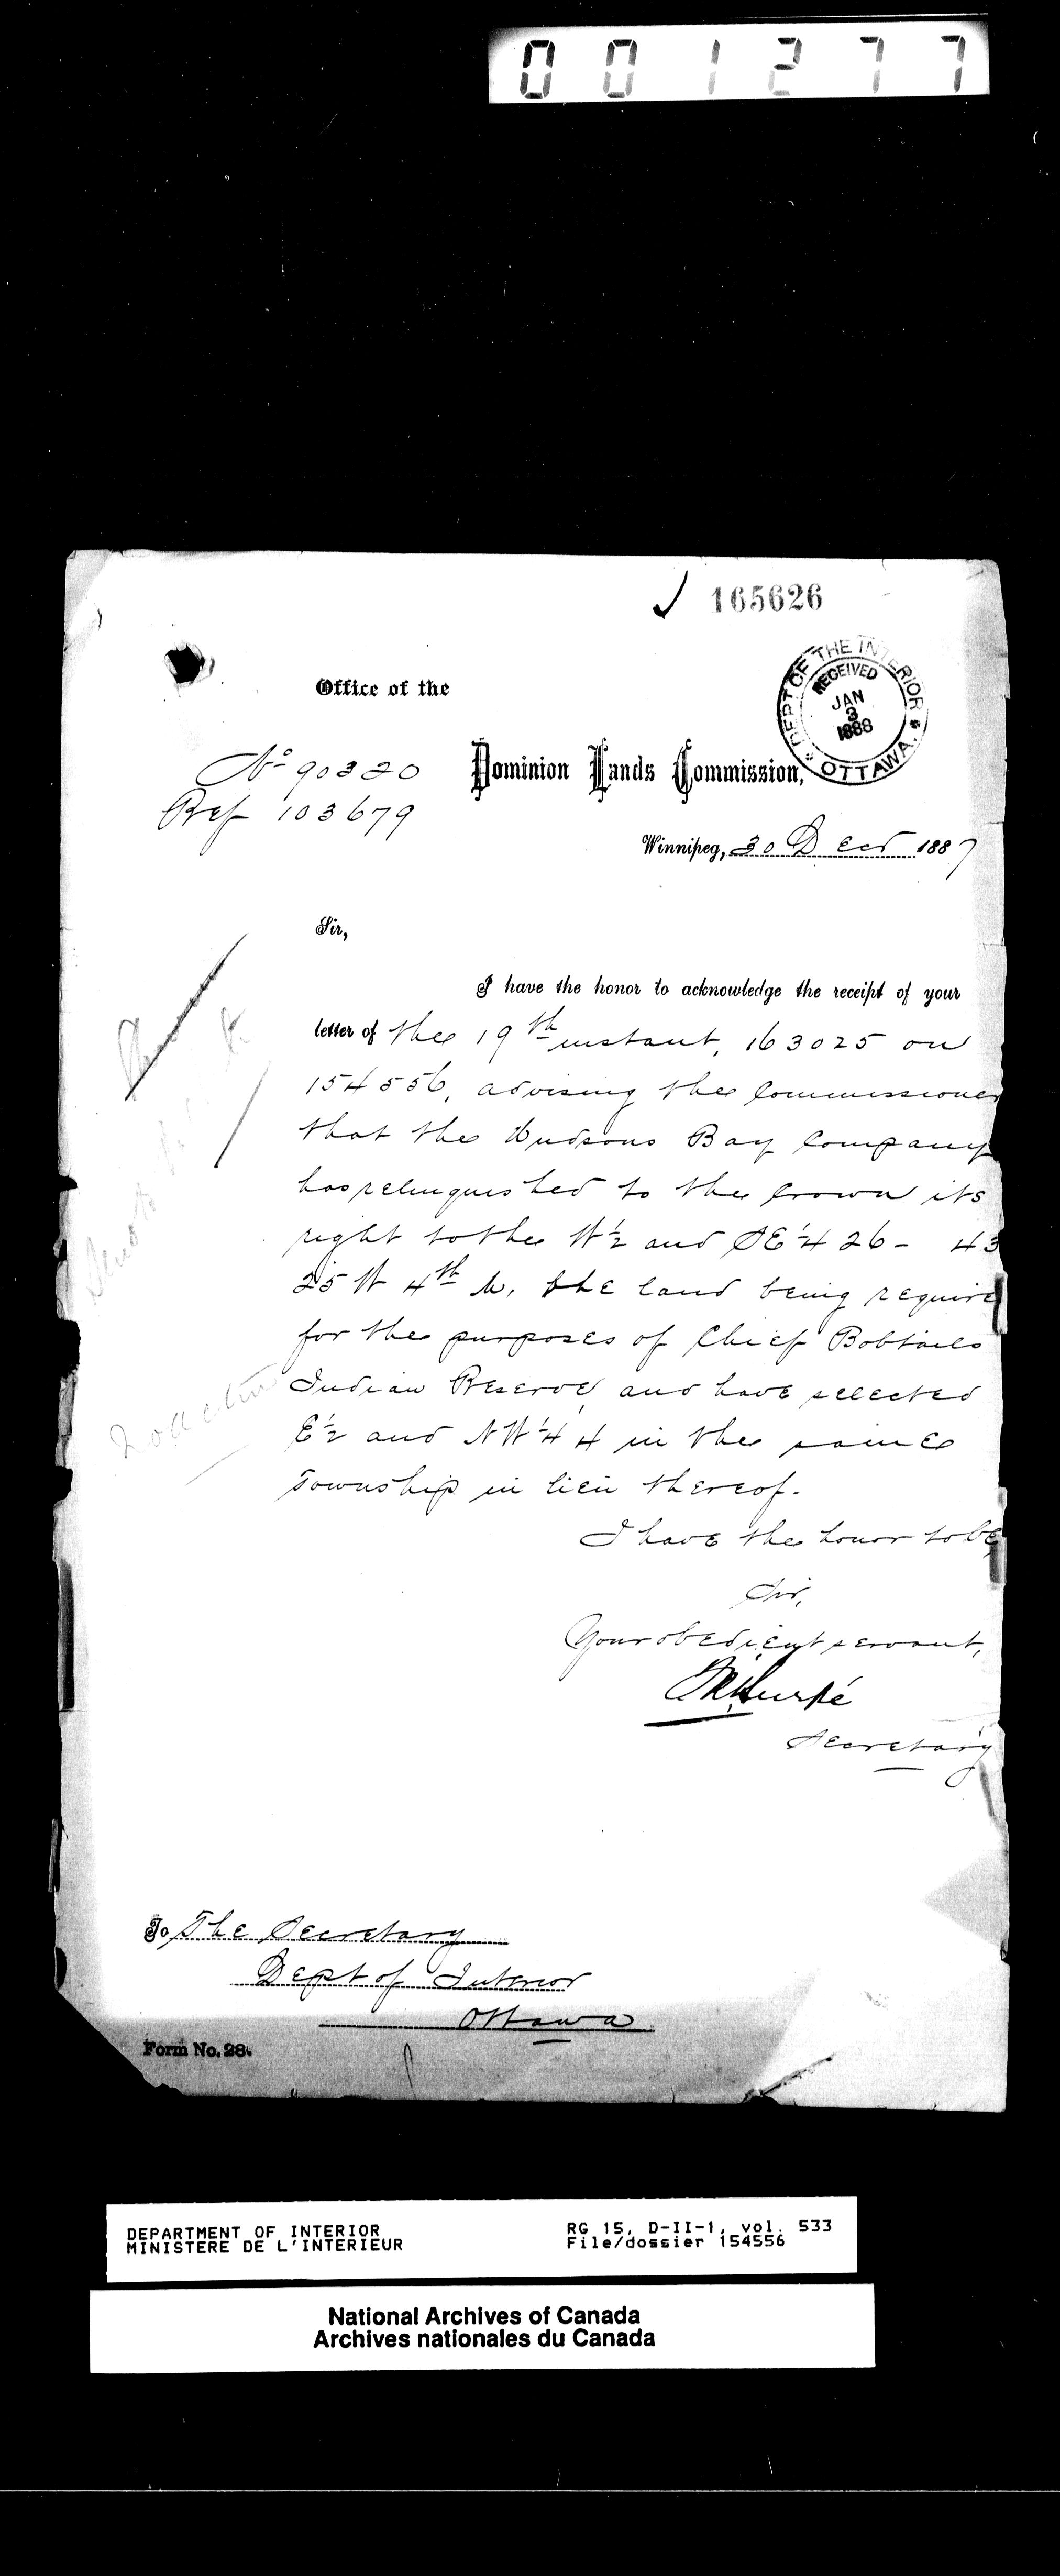 001277
165626
DEPT OF THE INTERIOR
RECEIVED
JAN
3
1888
OTTAWA.
Office of the
No 90320
Dominion Lands Commission,
Ref 103679
Winnipeg, 30 Decr 1887
Sir,
I have the honor to acknowledge the receipt of your
letter of the 19th instant, 163025 on
154556, advising the Commissioner
that the Hudsons Bay Company
has relinquished to the Crown its
right to the W½ and SE¼ 26 - 43
25 W 4th M, the land being require
for the purposes of Chief Bobtails
Indian Reserve, and have selected
E½ and NW¼ 4 in the same
Township in lieu thereof.
I have the honor to be
Sir,
Your obedient servant,
Secretary
To The Secretary
Dept of Interior
Ottawa
Form No. 28.
DEPARTMENT OF INTERIOR
MINISTERE DE L'INTERIEUR
RG 15, D-II-1, vol. 533
File/dossier 154556
National Archives of Canada
Archives nationales du Canada